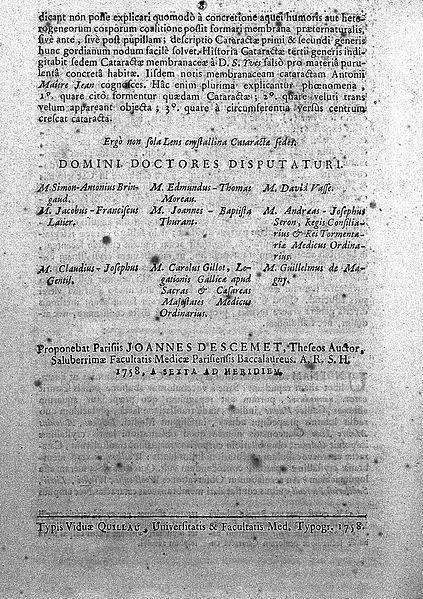 dicant non posse explicari quomodò à concretione aquei humoris aut hete-
rogeneorum corporum coalitione possit formari membrana præternaturalis,
sive ante, sivè post pupillam; descriptio Cataractæ primi & secundi generis
hunc gordianum nodum facilè solvet. Historia Cataractæ tertii generis indi-
gitabit sedem Cataractæ membranaceæ à D. S. Yves falsò pro materiâ puru-
lentâ concretâ habitæ. Iisdem notis membranaceam cataractam Antonii
Maitre Jean cognosces. Hæc enim plurima explicantur phœnomena,
1°. quare citò formentur quædam Cataractæ; 2°. quare veluti trans
velum appareant objecta; 3°. quare à circumferentia versùs centrum
crescat cataracta.
Ergò non sola Lens crystallina Cataractæ sedes.
DOMINI DOCTORES DISPUTATURI.
M. Simon-Antonius Brin-
gaud.
M. Edmundus-Thomas
Moreau.
M. David Vasse.
M. Jacobus-Franciscus
Latier.
M. Joannes-Baptista
Thurant.
M. Andreas-Josephus
Seron, Regis Consilia-
rius & Rei Tormenta-
riæ Medicus Ordina-
rius.
M. Claudius-Josephus
Gentil.
M. Carolus Gillot, Le-
gationis Gallicæ apud
Sacras & Cæsareas
Majestates Medicus
Ordinarius.
M. Guillelmus de Ma-
gny.
Proponebat Parisiis JOANNES DESCEMET, Theseos Auctor,
Saluberrimæ Facultatis Medicæ Parisiensis Baccalaureus. A. R. S. H.
1758, A SEXTA AD MERIDIEM.
Typis Viduæ QUILLAU, Universitatis & Facultatis Med. Typogr. 1758.